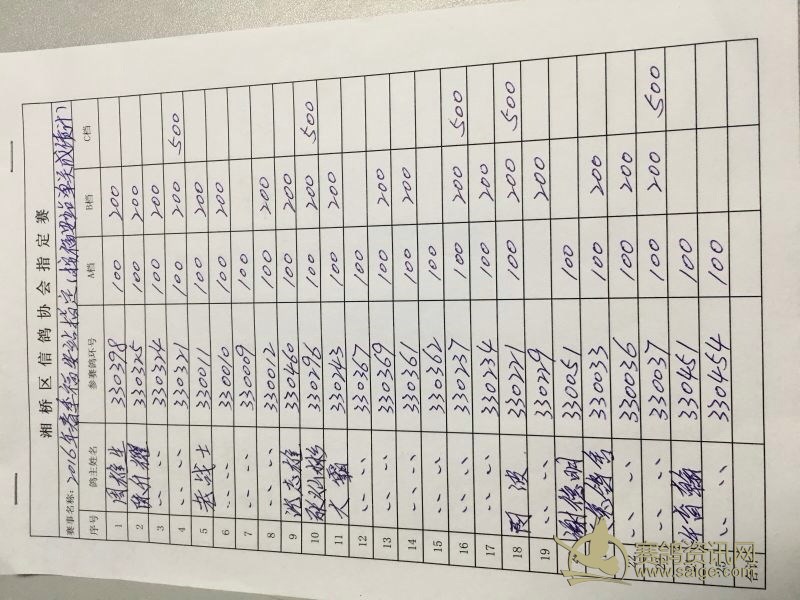 湘桥区信鸽协会指定赛
赛事名称：2016年春季福安站指定
序号 鸽主姓名 参赛鸽环号 A档 B档 C档
1 330398 100 200
2 330325 100 200
3 〃 〃 330324 100 200
4 〃 〃 330321 100 200 500
5 战士 330011 100 200
6 〃 〃 330010 100 200
7 〃 〃 330009 100
8 〃 〃 330012 100 200
9 330460 100 200
10 330296 100 200 500
11 大霸 330243 100 200
12 〃 〃 330367 100
13 〃 〃 330369 100 200
14 〃 〃 330361 100 200
15 〃 〃 330362 100
16 〃 〃 330237 100 200 500
17 〃 〃 330234 100 200
18 330221 100 200 500
19 〃 〃 330229 200
谢德明 330051 100
330033 100 200
〃 〃 330036 100 200
〃 〃 330037 100 200 500
330451 100
〃 〃 330454 100
赛鸽资讯网
www.saige.com